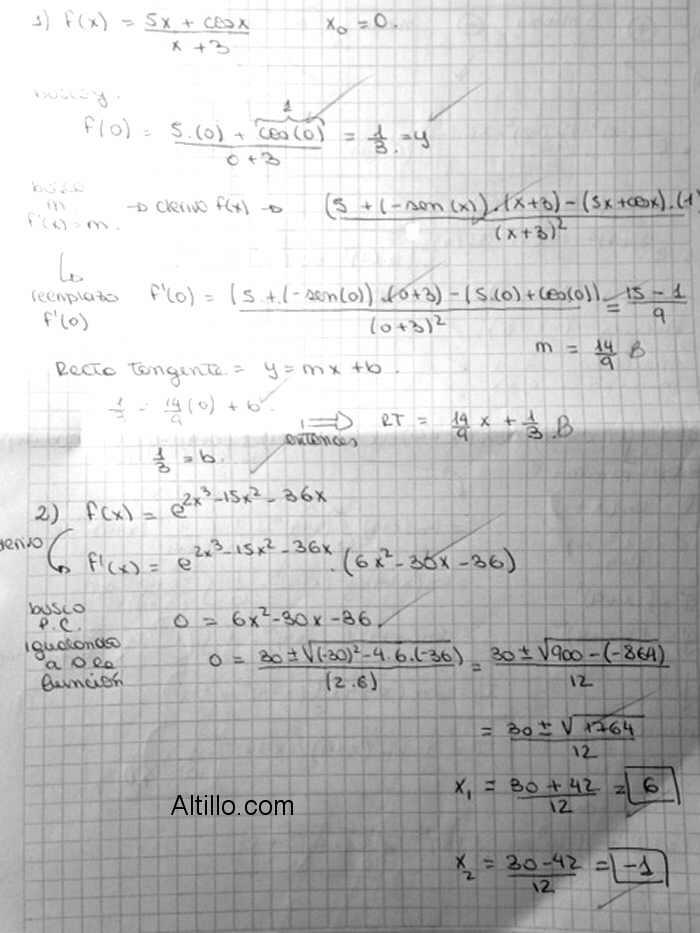 1) f(x) = (5x + cosx)/(x + 3)    x₀ = 0.
busco y.
1
f(0) = (5.(0) + cos(0))/(0 + 3) = 1/3. = y
busco
m → derivo f(x) → ((5 + (-sen(x)).(x+3) - (5x+cosx).(1)/(x+3)²
f'(x) = m.
reemplazo f'(0) = (5 + (-sen(0)).(0+3) - (5.(0) + cos(0))/(0+3)² = (15 - 1)/9
f'(0)
m = 14/9 B
Recta tangente = y = mx + b.
1/3 = 14/9 (0) + b. ⇒ entonces RT = 14/9 x + 1/3. B
1/3 = b.
2) f(x) = e^(2x³-15x²-36x)
derivo f'(x) = e^(2x³-15x²-36x) . (6x² - 30x - 36)
busco
P.C. 0 = 6x² - 30x - 36.
igualando
a 0 la 0 = (30 ± √((-30)² - 4.6.(-36)))/(2.6) = (30 ± √(900 - (-864)))/12
función
= (30 ± √1764)/12
x₁ = (30 + 42)/12 = 6
Altillo.com
x₂ = (30 - 42)/12 = -1